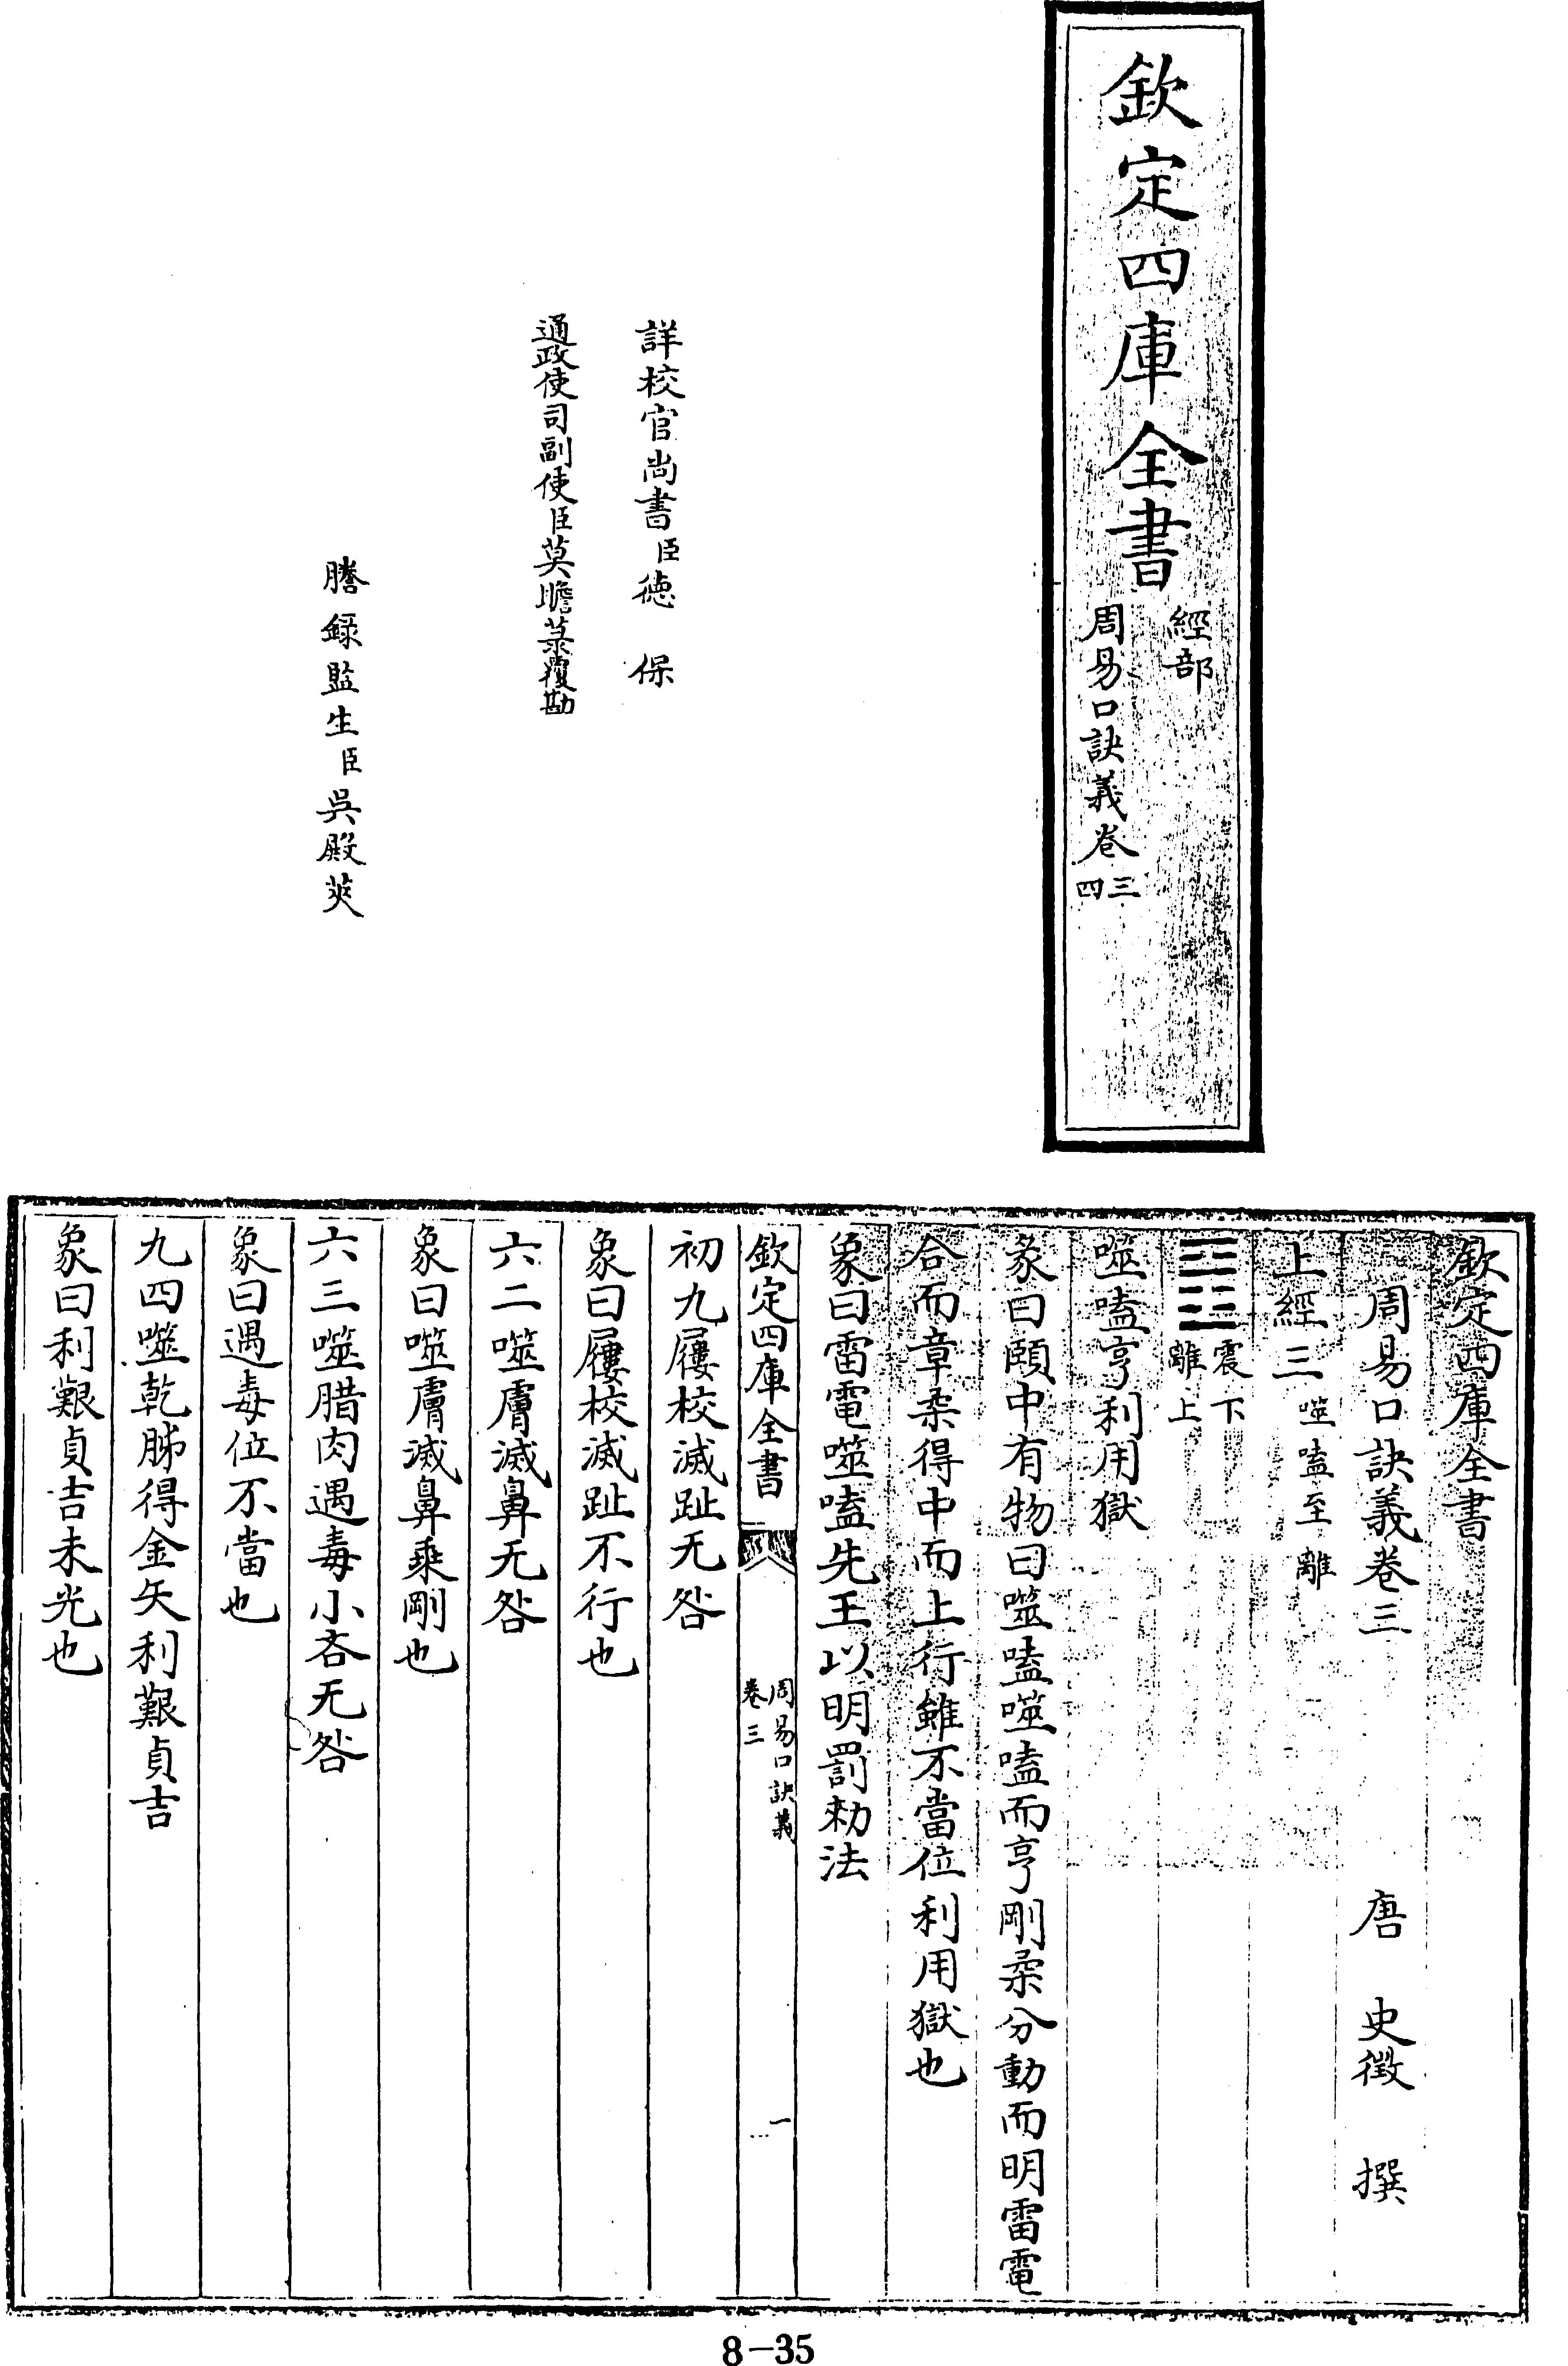 欽定四庫全書
經部
周易口訣義卷三四
詳校官尚書臣德保
通政使司副使臣莫瞻菉覆勘
謄錄監生臣吳殿英
欽定四庫全書
周易口訣義卷三
唐 史徵 撰
上經三 噬嗑至離
䷔ 震下離上
噬嗑亨利用獄
彖曰頤中有物曰噬嗑噬嗑而亨剛柔分動而明雷電
合而章柔得中而上行雖不當位利用獄也
象曰雷電噬嗑先王以明罰勑法
欽定四庫全書
周易口訣義
卷三
一
初九屨校滅趾无咎
象曰屨校滅趾不行也
六二噬膚滅鼻无咎
象曰噬膚滅鼻乘剛也
六三噬腊肉遇毒小吝无咎
象曰遇毒位不當也
九四噬乾胏得金矢利艱貞吉
象曰利艱貞吉未光也
8-35